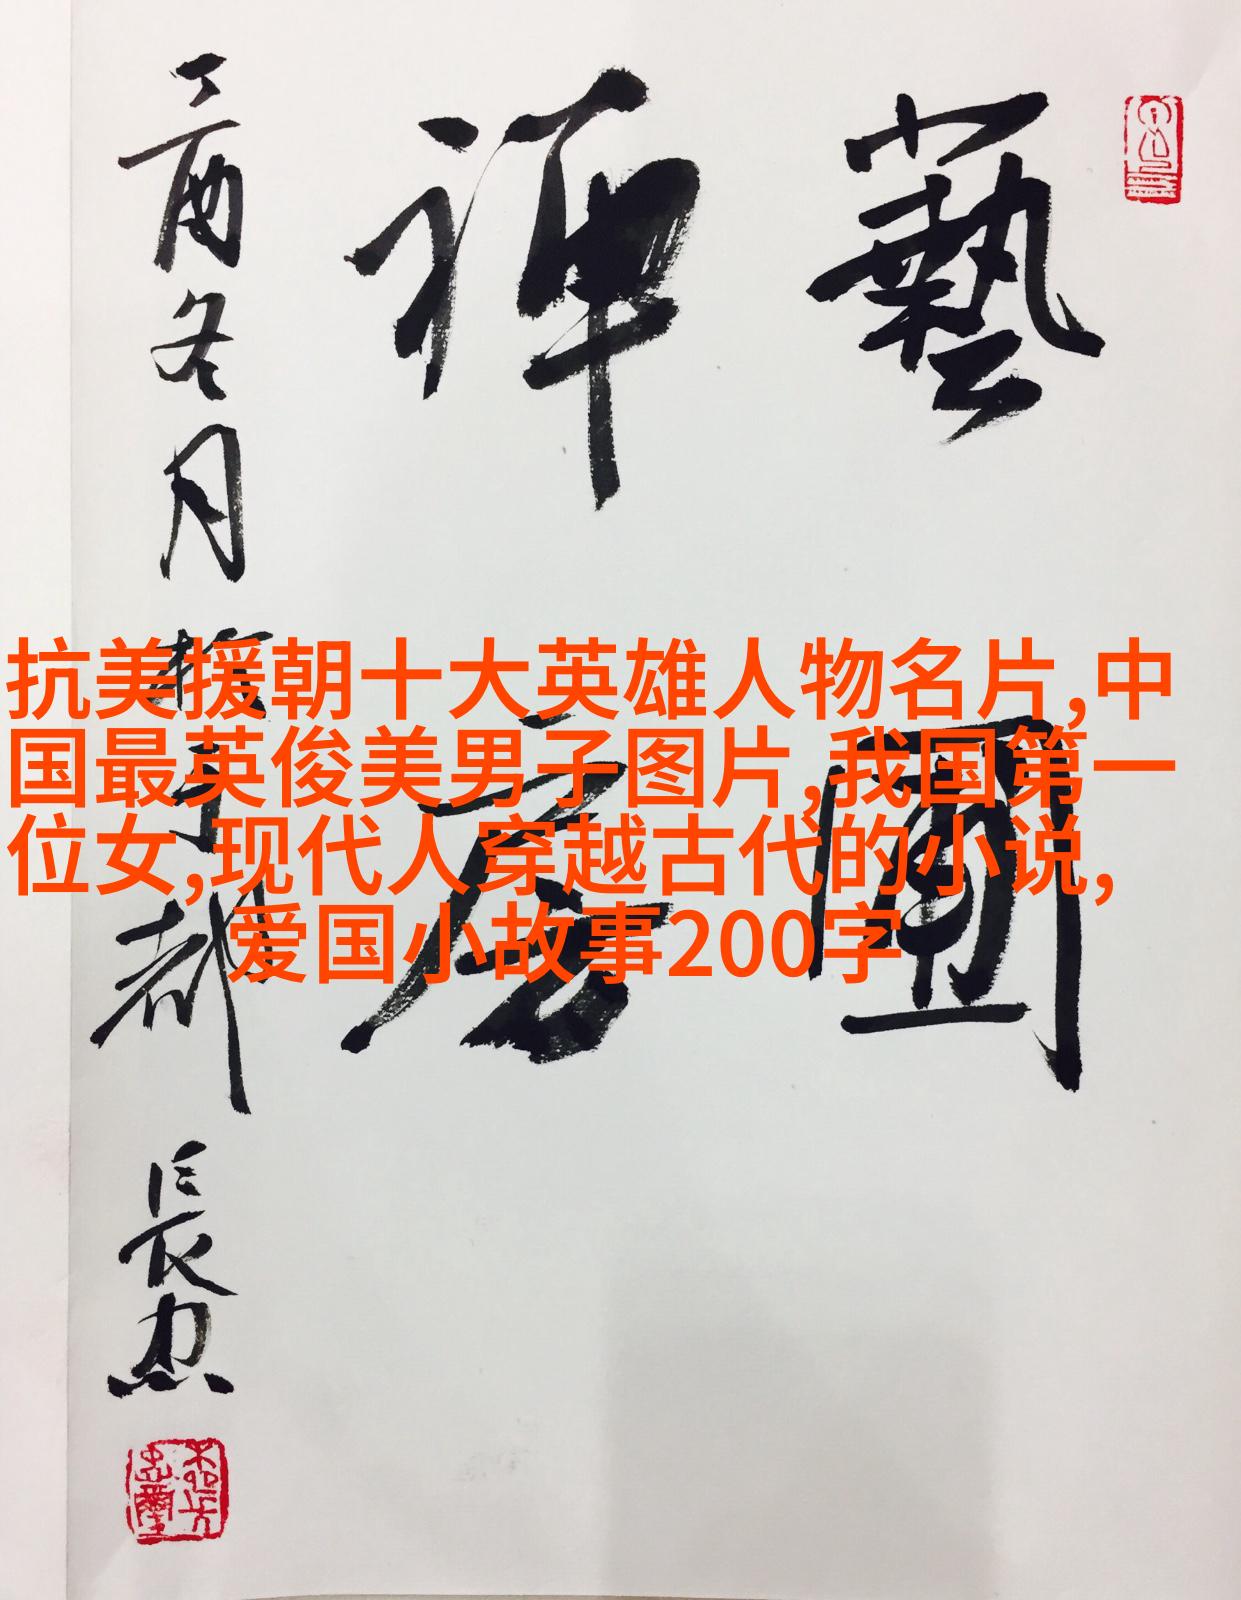 抗美援朝十大英雄人物名片,中
国最英俊美男子图片,我国第一
位女,现代人穿越古代的小说,
爱国小故事200字
藝
禪房
丁酉冬月 都 長